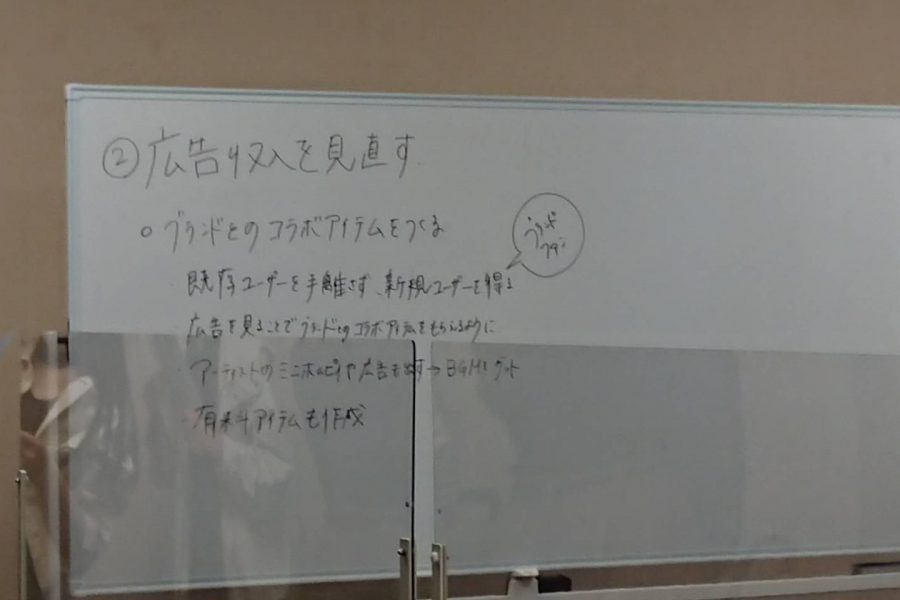 ②広告収入を見直す
○ブランドとのコラボアイテムをつくる
ブランド
ファン
・既存ユーザーを手離さず、新規ユーザーを得る
・広告を見ることでブランドとのコラボアイテムをもらえるように
・アーティストのミニホムピや広告も出す→BGMをゲット
・有料アイテムも作成